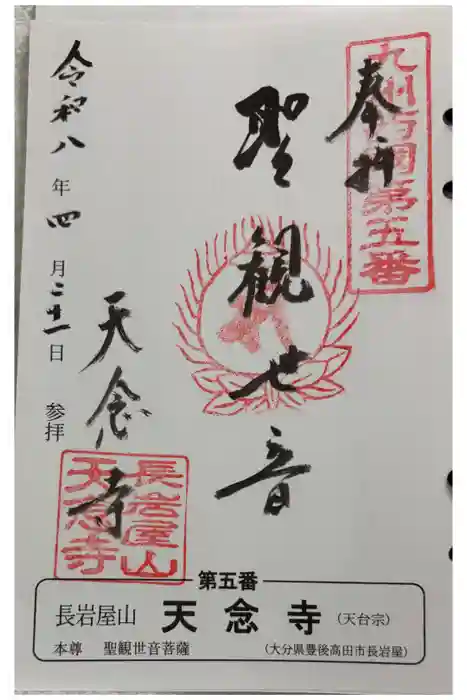 九州西國第五番
奉拝
聖観世音
天念寺
長岩屋山
天念寺
令和八年四月二十一日 参拝
第五番
長岩屋山 天念寺 (天台宗)
本尊 聖観世音菩薩 (大分県豊後高田市長岩屋)